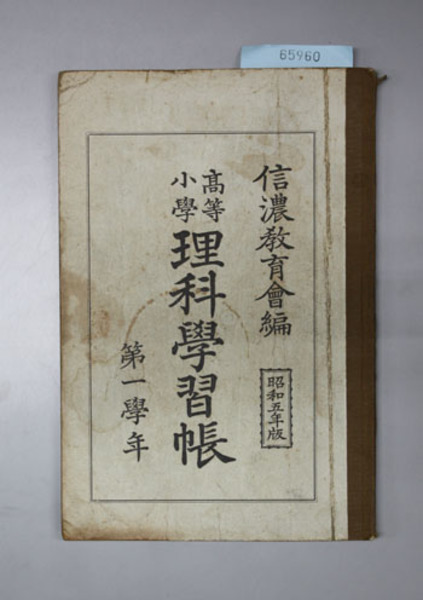 65960
信濃教育會編
昭和五年版
高等
小學
理科學習帳
第一學年